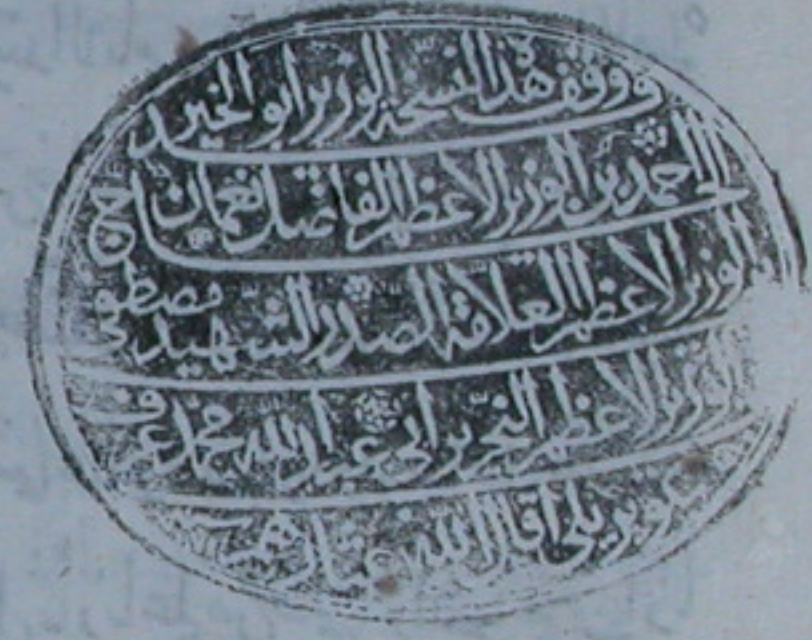 قد وقف هذا النسخة الوزير ابو الخير
الحاج احمد بن الوزير الاعظم الفاضل نعمان
الوزير الاعظم العلامة الصدر الشهيد مصطفى
الوزير الاعظم النحرير ابي عبد الله محمد عرف
كوپريلي اقال الله عثارهم